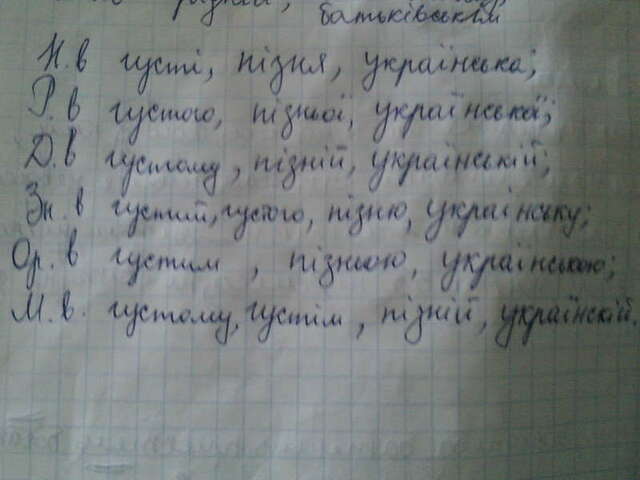 батьківським
Н.в густі, пізня, українська;
Р.в густого, пізньої, української;
Д.в густому, пізній, українській;
Зн.в густий, густого, пізню, українську;
Ор.в густим, пізньою, українською;
М.в. густому, густім, пізній, українскій.